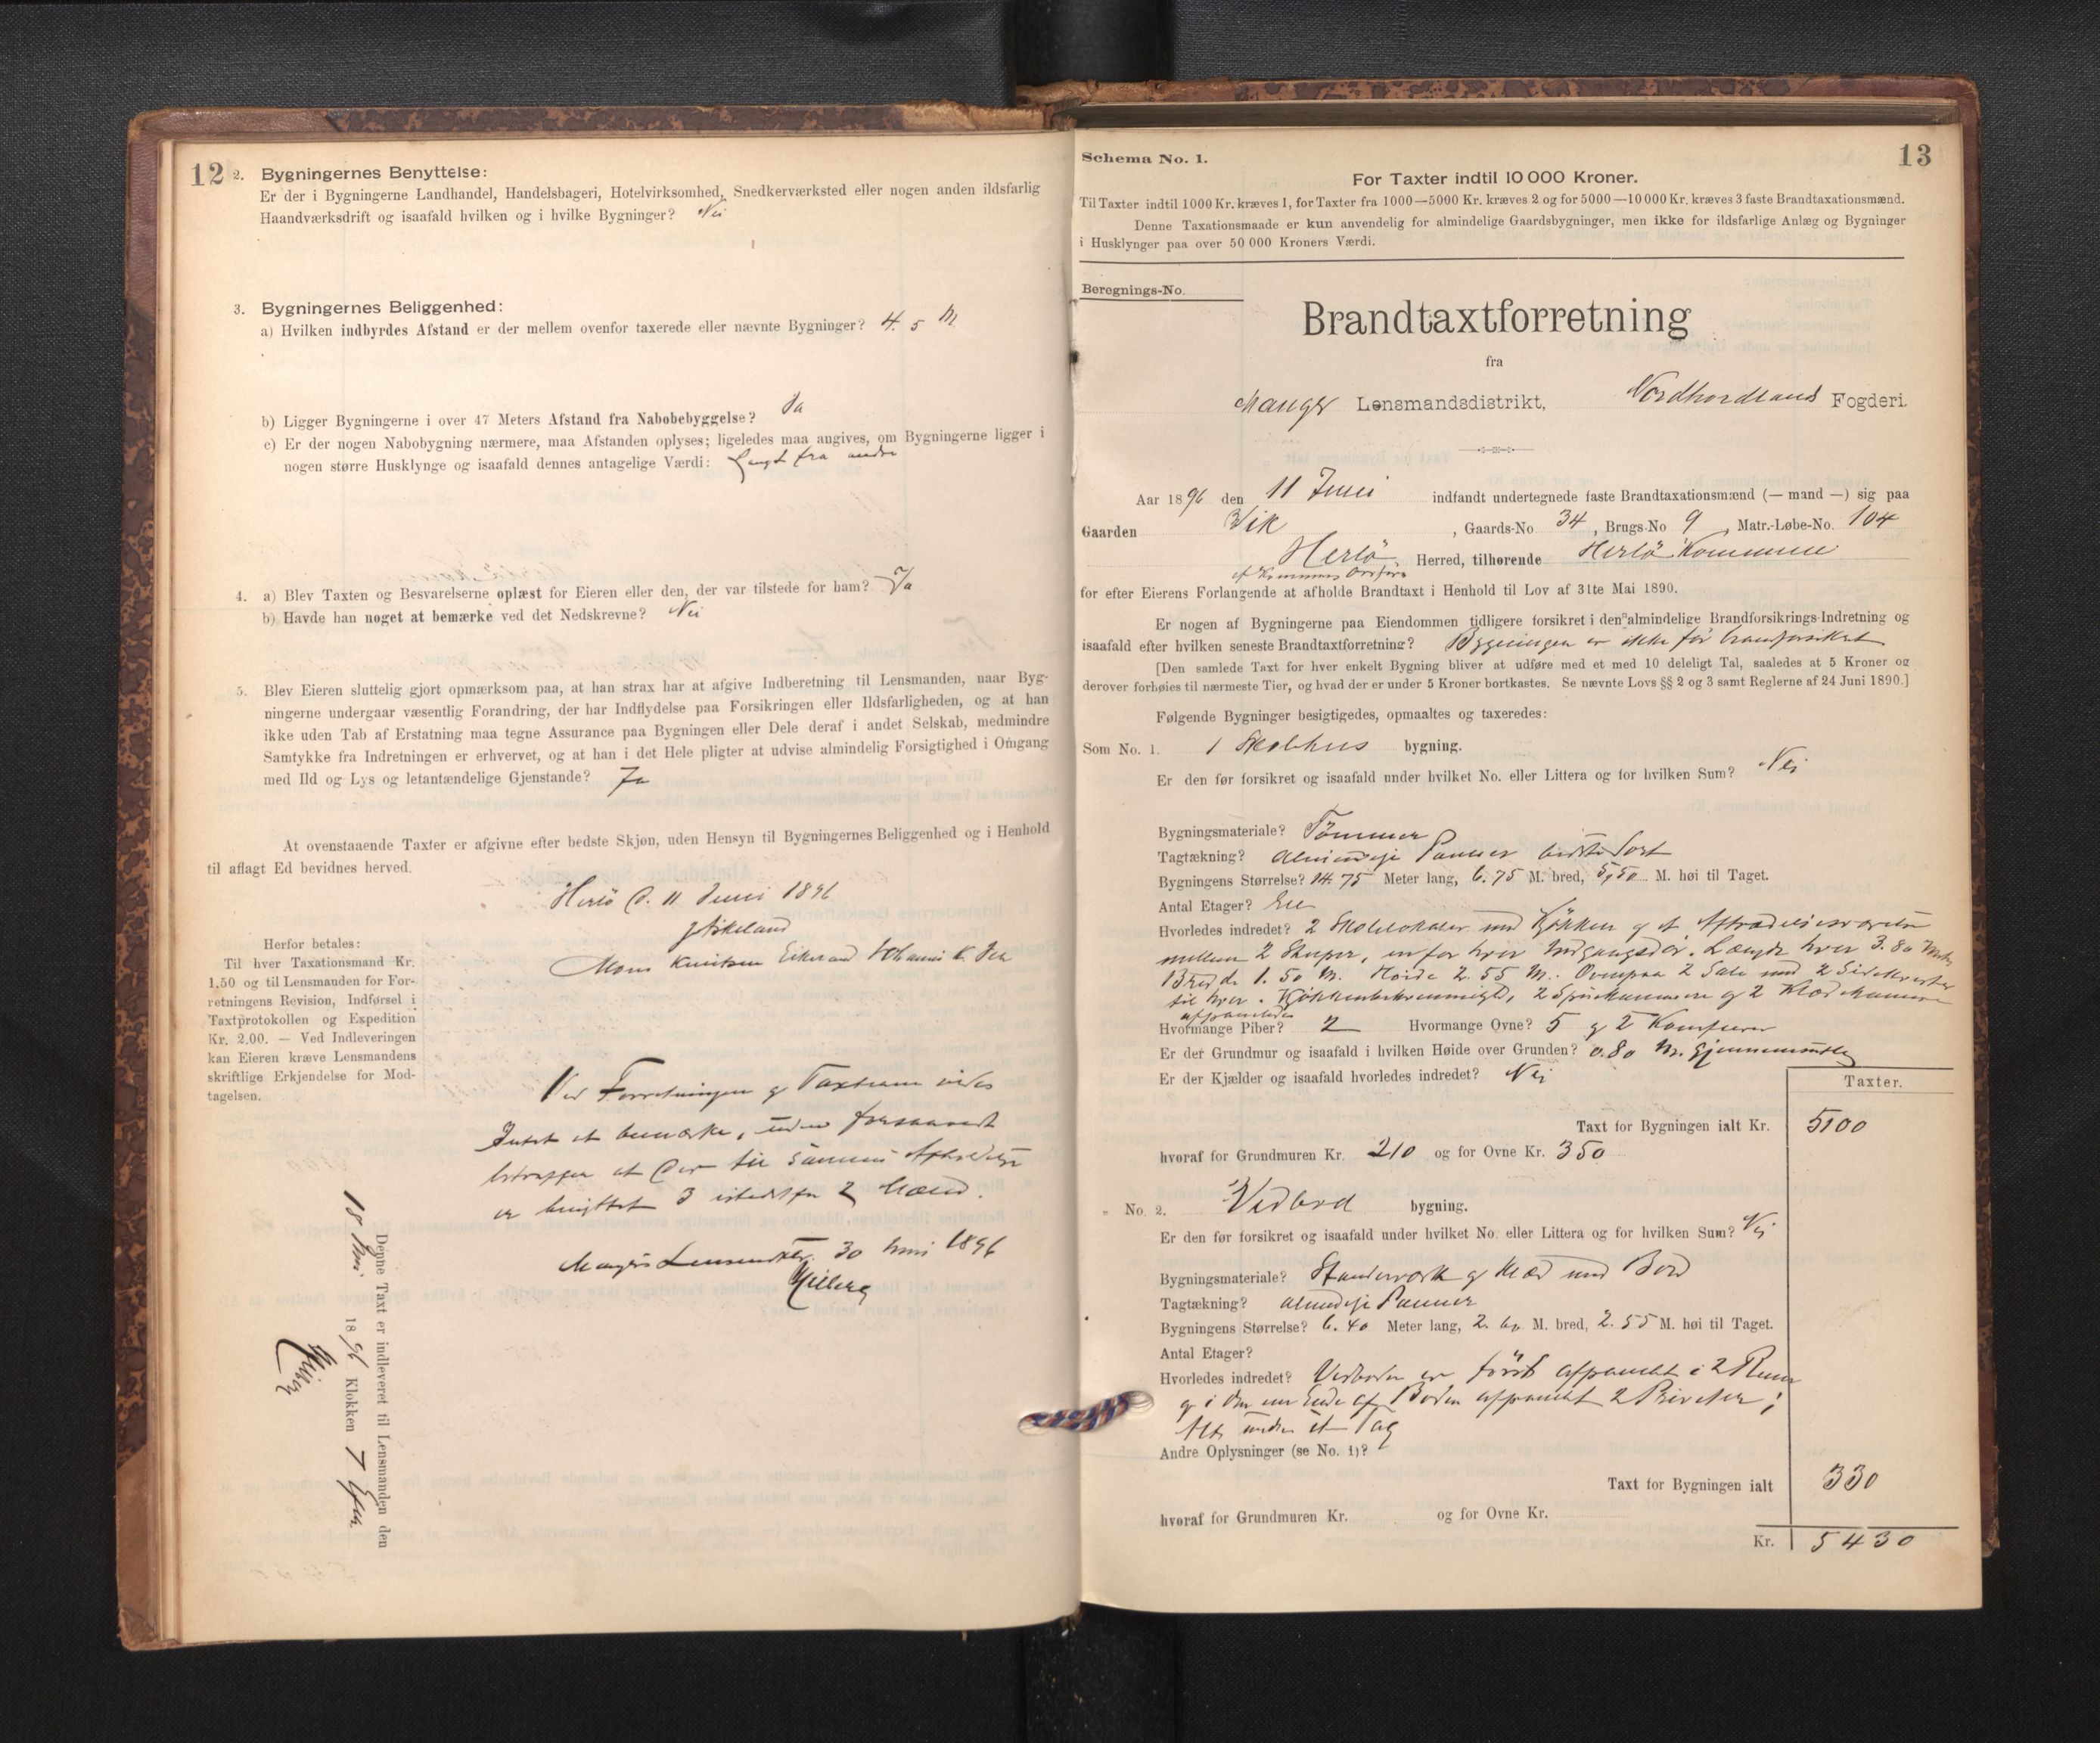 12
2. Bygningernes Benyttelse:
Er der i Bygningerne Landhandel, Handelsbageri, Hotelvirksomhed, Snedkerværksted eller nogen anden ildsfarlig
Haandværksdrift og isaafald hvilken og i hvilke Bygninger? Nei
3. Bygningernes Beliggenhed:
a) Hvilken indbyrdes Afstand er der mellem ovenfor taxerede eller nævnte Bygninger? 4.5 M
b) Ligger Bygningerne i over 47 Meters Afstand fra Nabobebyggelse? Ja
c) Er der nogen Nabobygning nærmere, maa Afstanden oplyses; ligeledes maa angives, om Bygningerne ligger i
nogen større Husklynge og isaafald dennes antagelige Værdi: Langt fra andre
4. a) Blev Taxten og Besvarelserne oplæst for Eieren eller den, der var tilstede for ham? Ja
b) Havde han noget at bemærke ved det Nedskrevne? Nei
5. Blev Eieren sluttelig gjort opmærksom paa, at han strax har at afgive Indberetning til Lensmanden, naar Byg-
ningerne undergaar væsentlig Forandring, der har Indflydelse paa Forsikringen eller Ildsfarligheden, og at han
ikke uden Tab af Erstatning maa tegne Assurance paa Bygningen eller Dele deraf i andet Selskab, medmindre
Samtykke fra Indretningen er erhvervet, og at han i det Hele pligter at udvise almindelig Forsigtighed i Omgang
med Ild og Lys og letantændelige Gjenstande? Ja
At ovenstaaende Taxter er afgivne efter bedste Skjøn, uden Hensyn til Bygningernes Beliggenhed og i Henhold
til aflagt Ed bevidnes herved.
Herlö d. 11 Juni 1896
Mons Knutsen
Herfor betales:
Til hver Taxationsmand Kr.
1.50 og til Lensmanden for For-
retningens Revision, Indførsel i
Taxtprotokollen og Expedition
Kr. 2.00. — Ved Indleveringen
kan Eieren kræve Lensmandens
skriftlige Erkjendelse for Mod-
tagelsen.
Ved Forretningen og Taxterne vides
Intet at bemærke, uden forsaavidt
at der til samme
er benyttet 3 istedetfor 2 Mænd.
30 Juni 1896
Denne Taxt er indleveret til Lensmanden den
18 Juni 1896 Klokken 7 Efm.
13
Schema No. 1.
For Taxter indtil 10 000 Kroner.
Til Taxter indtil 1000 Kr. kræves 1, for Taxter fra 1000—5000 Kr. kræves 2 og for 5000—10 000 Kr. kræves 3 faste Brandtaxationsmænd.
Denne Taxationsmaade er kun anvendelig for almindelige Gaardsbygninger, men ikke for ildsfarlige Anlæg og Bygninger
i Husklynger paa over 50 000 Kroners Værdi.
Beregnings-No.
Brandtaxtforretning
fra
Manger Lensmandsdistrikt, Nordhordlands Fogderi.
Aar 1896 den 11 Juni indfandt undertegnede faste Brandtaxationsmænd (— mand —) sig paa
Gaarden Vik, Gaards-No 34, Brugs-No 9, Matr.-Løbe-No. 104
Herlö Herred, tilhørende Herlö Kommune
af Kommunens Ordfører
for efter Eierens Forlangende at afholde Brandtaxt i Henhold til Lov af 31te Mai 1890.
Er nogen af Bygningerne paa Eiendommen tidligere forsikret i den almindelige Brandforsikrings-Indretning og
isaafald efter hvilken seneste Brandtaxtforretning? Bygningen er ikke før brandforsikret
[Den samlede Taxt for hver enkelt Bygning bliver at udføre med et med 10 deleligt Tal, saaledes at 5 Kroner og
derover forhøies til nærmeste Tier, og hvad der er under 5 Kroner bortkastes. Se nævnte Lovs §§ 2 og 3 samt Reglerne af 24 Juni 1890.]
Følgende Bygninger besigtigedes, opmaaltes og taxeredes:
Som No. 1. 1 Skolehus bygning.
Er den før forsikret og isaafald under hvilket No. eller Littera og for hvilken Sum? Nei
Bygningsmateriale? Tömmer
Tagtækning? Almindelige Panner bedste Sort
Bygningens Størrelse? 14.75 Meter lang, 6.75 M. bred, 5,50 M. høi til Taget.
Antal Etager? En
Hvorledes indredet? 2 Skolelokaler med Kjökken og et Aftrædelsesværelse
mellem 2 Skuper, enfor hver Indgangsdør. Længde hver 3.80 Meter
Bredde 1.50 M. Höide 2.55 M. Ovenpaa 2 Sale med 2 Sidekvister
til hver. 2 Spisekammere og 2 Klædekammere
afpanelede
Hvormange Piber? 2 Hvormange Ovne? 5 og 2 Komfurer
Er der Grundmur og isaafald i hvilken Høide over Grunden? 0.80 M. Gjennemsnitlig
Er der Kjælder og isaafald hvorledes indredet? Nei
Taxter.
Taxt for Bygningen ialt Kr. 5100
hvoraf for Grundmuren Kr. 210 og for Ovne Kr. 350
" No. 2. Vedbod bygning.
Er den før forsikret og isaafald under hvilket No. eller Littera og for hvilken Sum? Nei
Bygningsmateriale? Standerværk og klæd med Bord
Tagtækning? almindelige Panner
Bygningens Størrelse? 6.40 Meter lang, 2.60 M. bred, 2.55 M. høi til Taget.
Antal Etager?
Hvorledes indredet? Vedboden er først afpanelet i 2 Rum
og i den ene Ende af Boden afpanelet 2 Priveter;
Alt under et Tag
Andre Oplysninger (se No. 1)?
Taxt for Bygningen ialt 330
hvoraf for Grundmuren Kr. og for Ovne Kr.
Kr. 5430